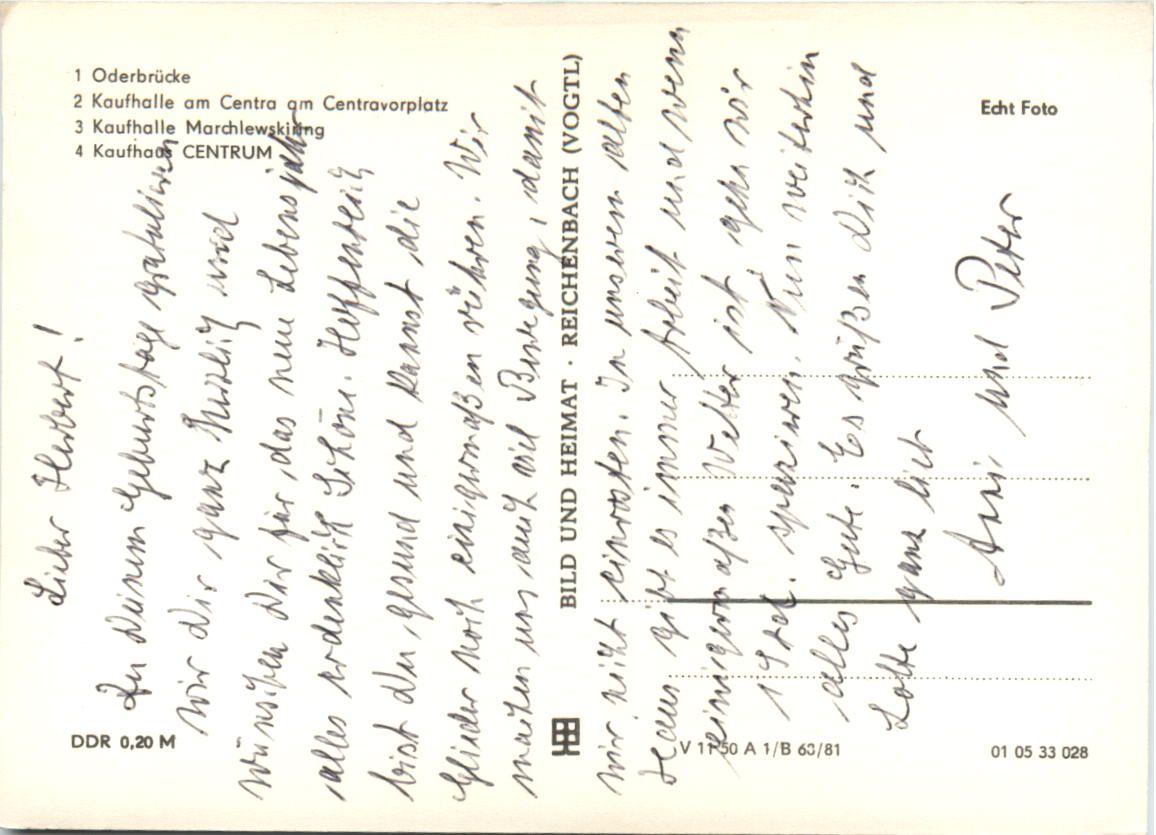 1 Oderbrücke
2 Kaufhalle am Centra am Centravorplatz
3 Kaufhalle Marchlewskiring
4 Kaufhaus CENTRUM
Echt Foto
BILD UND HEIMAT · REICHENBACH (VOGTL)
DDR 0,20 M
V 11 50 A 1/B 63/81
01 05 33 028
Lieber Herbert!
Zu Deinem Geburtstag gratulieren
wir Dir ganz herzlich und
wünschen Dir für das neue Lebensjahr
alles erdenklich Schöne. Hoffentlich
bist Du gesund und kannst die
Glieder noch einigermaßen rühren. Wir
machen uns auch viel Bewegung, damit
wir nicht einrosten. In unserem alten
Haus gibt es immer Arbeit und wenn
einigermaßen Wetter ist, gehn wir
1 Std. spazieren. Nun weiterhin
alles Gute. Es grüßen Dich und
Lotte ganz lieb
Anni und Peter